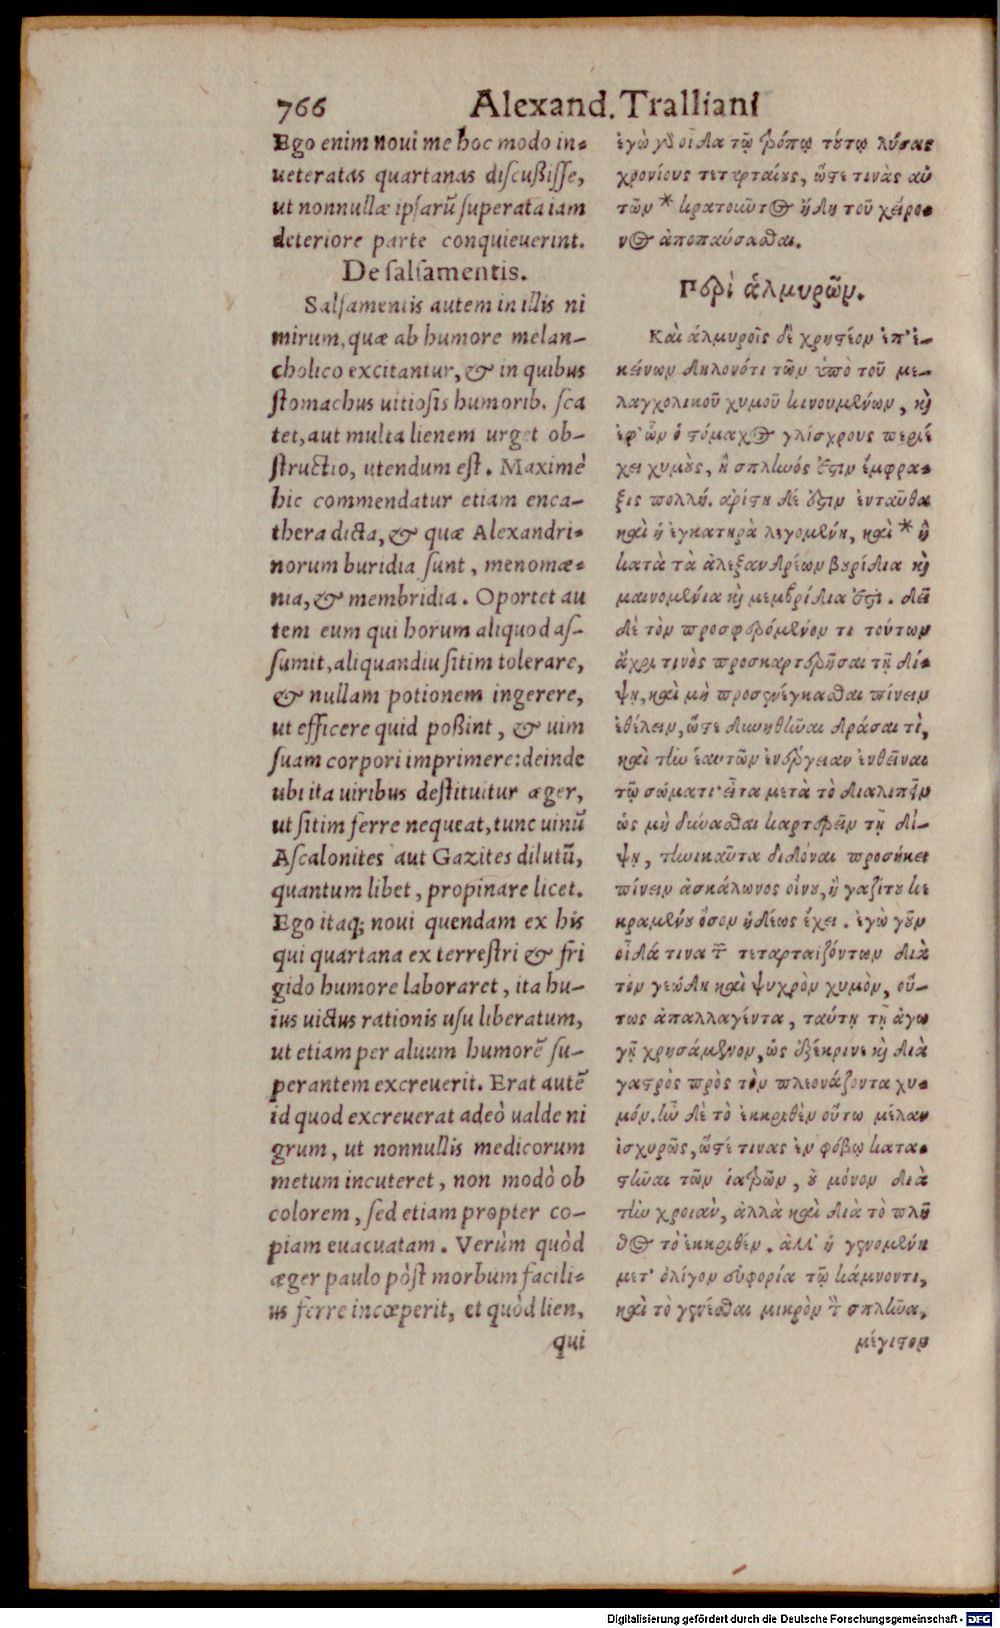 766 Alexand. Tralliani
Ego enim noui me hoc modo in-
ueteratas quartanas discußisse,
ut nonnullæ ipsarũ superata iam
deteriore parte conquieuerint.
De salsamentis.
Salsamentis autem in illis ni
mirum, quæ ab humore melan-
cholico excitantur, & in quibus
stomachus uitiosis humorib. sca
tet, aut multa lienem urget ob-
structio, utendum est. Maximè
hic commendatur etiam enca-
thera dicta, & quæ Alexandri-
norum buridia sunt, menomæ-
nia, & membridia. Oportet au
tem eum qui horum aliquod as-
sumit, aliquandiu sitim tolerare,
& nullam potionem ingerere,
ut efficere quid poßint, & uim
suam corpori imprimere: deinde
ubi ita uiribus destituitur æger,
ut sitim ferre nequeat, tunc uinũ
Ascalonites aut Gazites dilutũ,
quantum libet, propinare licet.
Ego itaq; noui quendam ex his
qui quartana ex terrestri & fri
gido humore laboraret, ita hu-
ius uictus rationis usu liberatum,
ut etiam per aluum humorẽ su-
perantem excreuerit. Erat autẽ
id quod excreuerat adeò ualde ni
grum, ut nonnullis medicorum
metum incuteret, non modò ob
colorem, sed etiam propter co-
piam euacuatam. Verùm quòd
æger paulo pòst morbum facili-
us ferre incœperit, et quòd lien,
qui
ἐγὼ γὰρ οἶδα τῷ τρόπῳ τούτῳ λύσας
χρονίους τεταρταίους, ὥστε τινὰς αὐ
τῶν * κρατοιῶτος ἤδη τοῦ χείρο-
νος ἀποπαύσασθαι.
Περὶ ἁλμυρῶν.
Καὶ ἁλμυροῖς δὲ χρηστέον ἐπ' ἐ-
κείνων δηλονότι τῶν ὑπὸ τοῦ με-
λαγχολικοῦ χυμοῦ κινουμένων, καὶ
ἐφ' ὧν ὁ στόμαχος γλίσχρους περιέ
χει χυμούς, ἢ σπληνός ἐστιν ἔμφρα-
ξις πολλή. ἀρίστη δέ ἐστιν ἐνταῦθα
καὶ ἡ ἐγκατηρὰ λεγομένη, καὶ * ἢ
κατὰ τὰ ἀλεξανδρέων βουρίδια καὶ
μαινομένια καὶ μεμβρίδια ἐστι. δεῖ
δὲ τὸν προσφερόμενον τι τούτων
ἄχρι τινὸς προσκαρτερῆσαι τῇ δί-
ψῃ, καὶ μὴ προσενέγκασθαι πίνειν
ἐθέλειν, ὥστε δυνηθῆναι δράσαι τὶ,
καὶ τὴν ἑαυτῶν ἐνέργειαν ἐνθεῖναι
τῷ σώματι· εἶτα μετὰ τὸ διαλιπεῖν
ὡς μὴ δύνασθαι καρτερεῖν τῇ δί-
ψῃ, τηνικαῦτα διδόναι προσήκει
πίνειν ἀσκάλωνος οἴνου, ἢ γαζίτου κε
κραμένου ὅσον ἡδέως ἔχει. ἐγὼ γοῦν
οἶδά τινα τῶν τεταρταϊζόντων διὰ
τὸν γεώδη καὶ ψυχρὸν χυμὸν, οὕ-
τως ἀπαλλαγέντα, ταύτῃ τῇ ἀγω
γῇ χρησάμενον, ὡς ἐξέκρινε καὶ διὰ
γαστρὸς πρὸς τὸν πλεονάζοντα χυ-
μόν. ἦν δὲ τὸ ἐκκριθὲν οὕτω μέλαν
ἰσχυρῶς, ὥστέ τινας ἐν φόβῳ κατα-
στῆναι τῶν ἰατρῶν, οὐ μόνον διὰ
τὴν χροιὰν, ἀλλὰ καὶ διὰ τὸ πλῆ
θος τὸ ἐκκριθέν. ἀλλ' ἡ γενομένη
μετ' ὀλίγον εὐφορία τῷ κάμνοντι,
καὶ τὸ γενέσθαι μικρὸν τὸν σπλῆνα,
μέγιστον
Digitalisierung gefördert durch die Deutsche Forschungsgemeinschaft - DFG